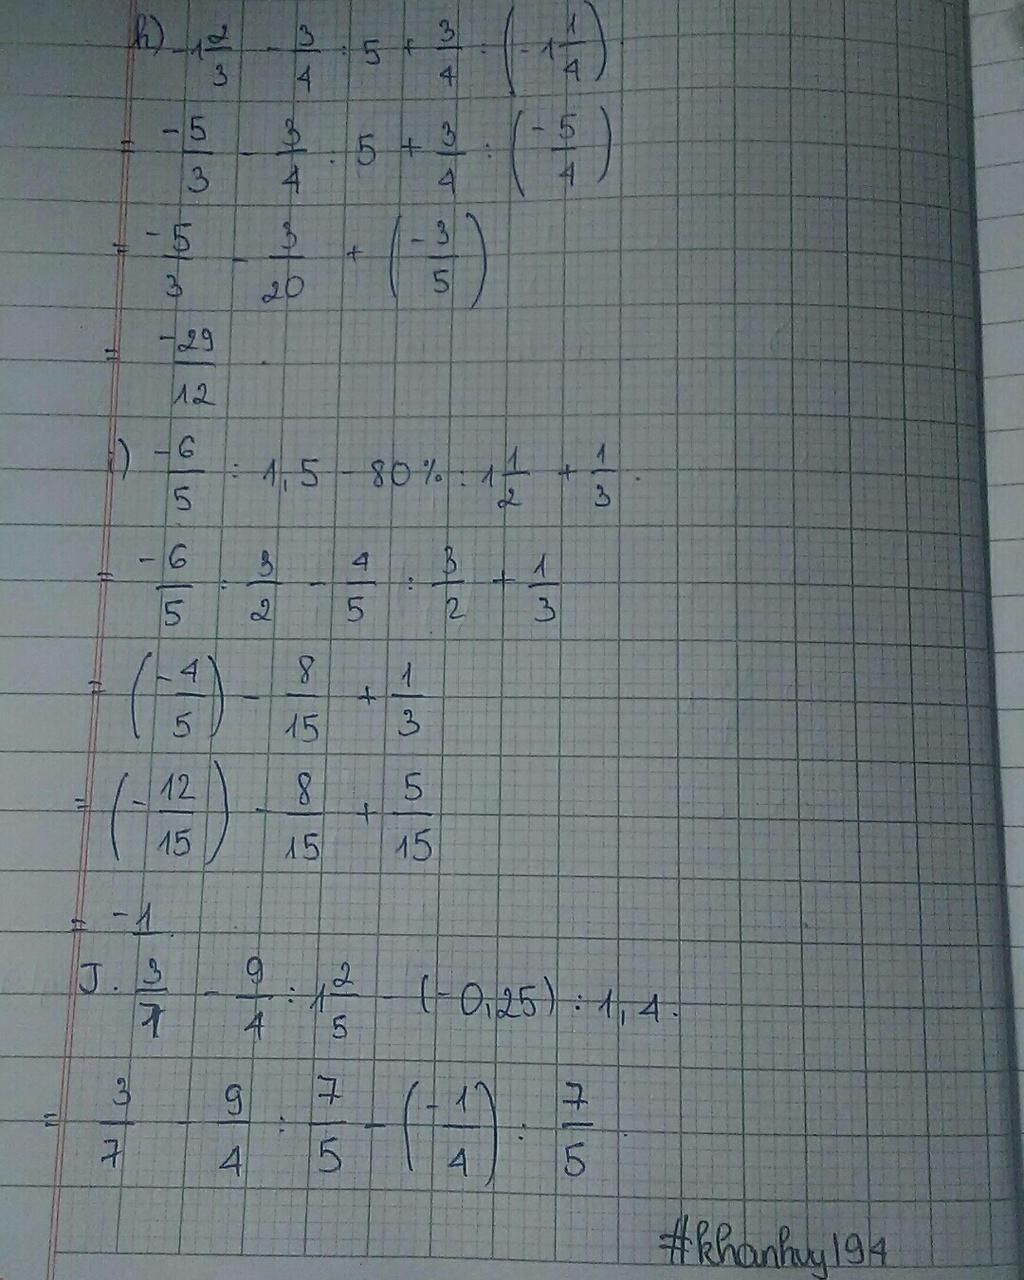 h) -1 2/3 - 3/4 : 5 + 3/4 : (-1 1/4)
= -5/3 - 3/4 : 5 + 3/4 : (-5/4)
= -5/3 - 3/20 + (-3/5)
= -29/12
) -6/5 : 1,5 - 80% : 1 1/2 + 1/3.
= -6/5 : 3/2 - 4/5 : 3/2 + 1/3
= (-4/5) - 8/15 + 1/3
= (-12/15) - 8/15 + 5/15
= -1
J. 3/7 - 9/4 : 1 2/5 - (-0,25) : 1,4.
= 3/7 - 9/4 : 7/5 - (-1/4) : 7/5.
#khanhuy194